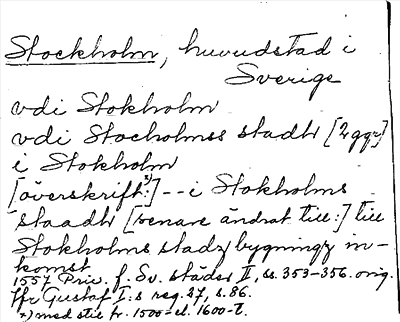 Stockholm, huvudstad i
Sverige
vdi Stokholm
vdi Stocholmss stadh [2 ggr]
i Stokholm
[överskrift:x)] -- i Stokholms
staadh [senare ändrat till:] till
Stokholms stadz bygningz in-
komst
1557 Priv. f. Sv. städer II, ss. 353-356. orig.
Jfr Gustaf I:s reg. 27, s. 86.
x) med stil fr. 1500- el. 1600-t.